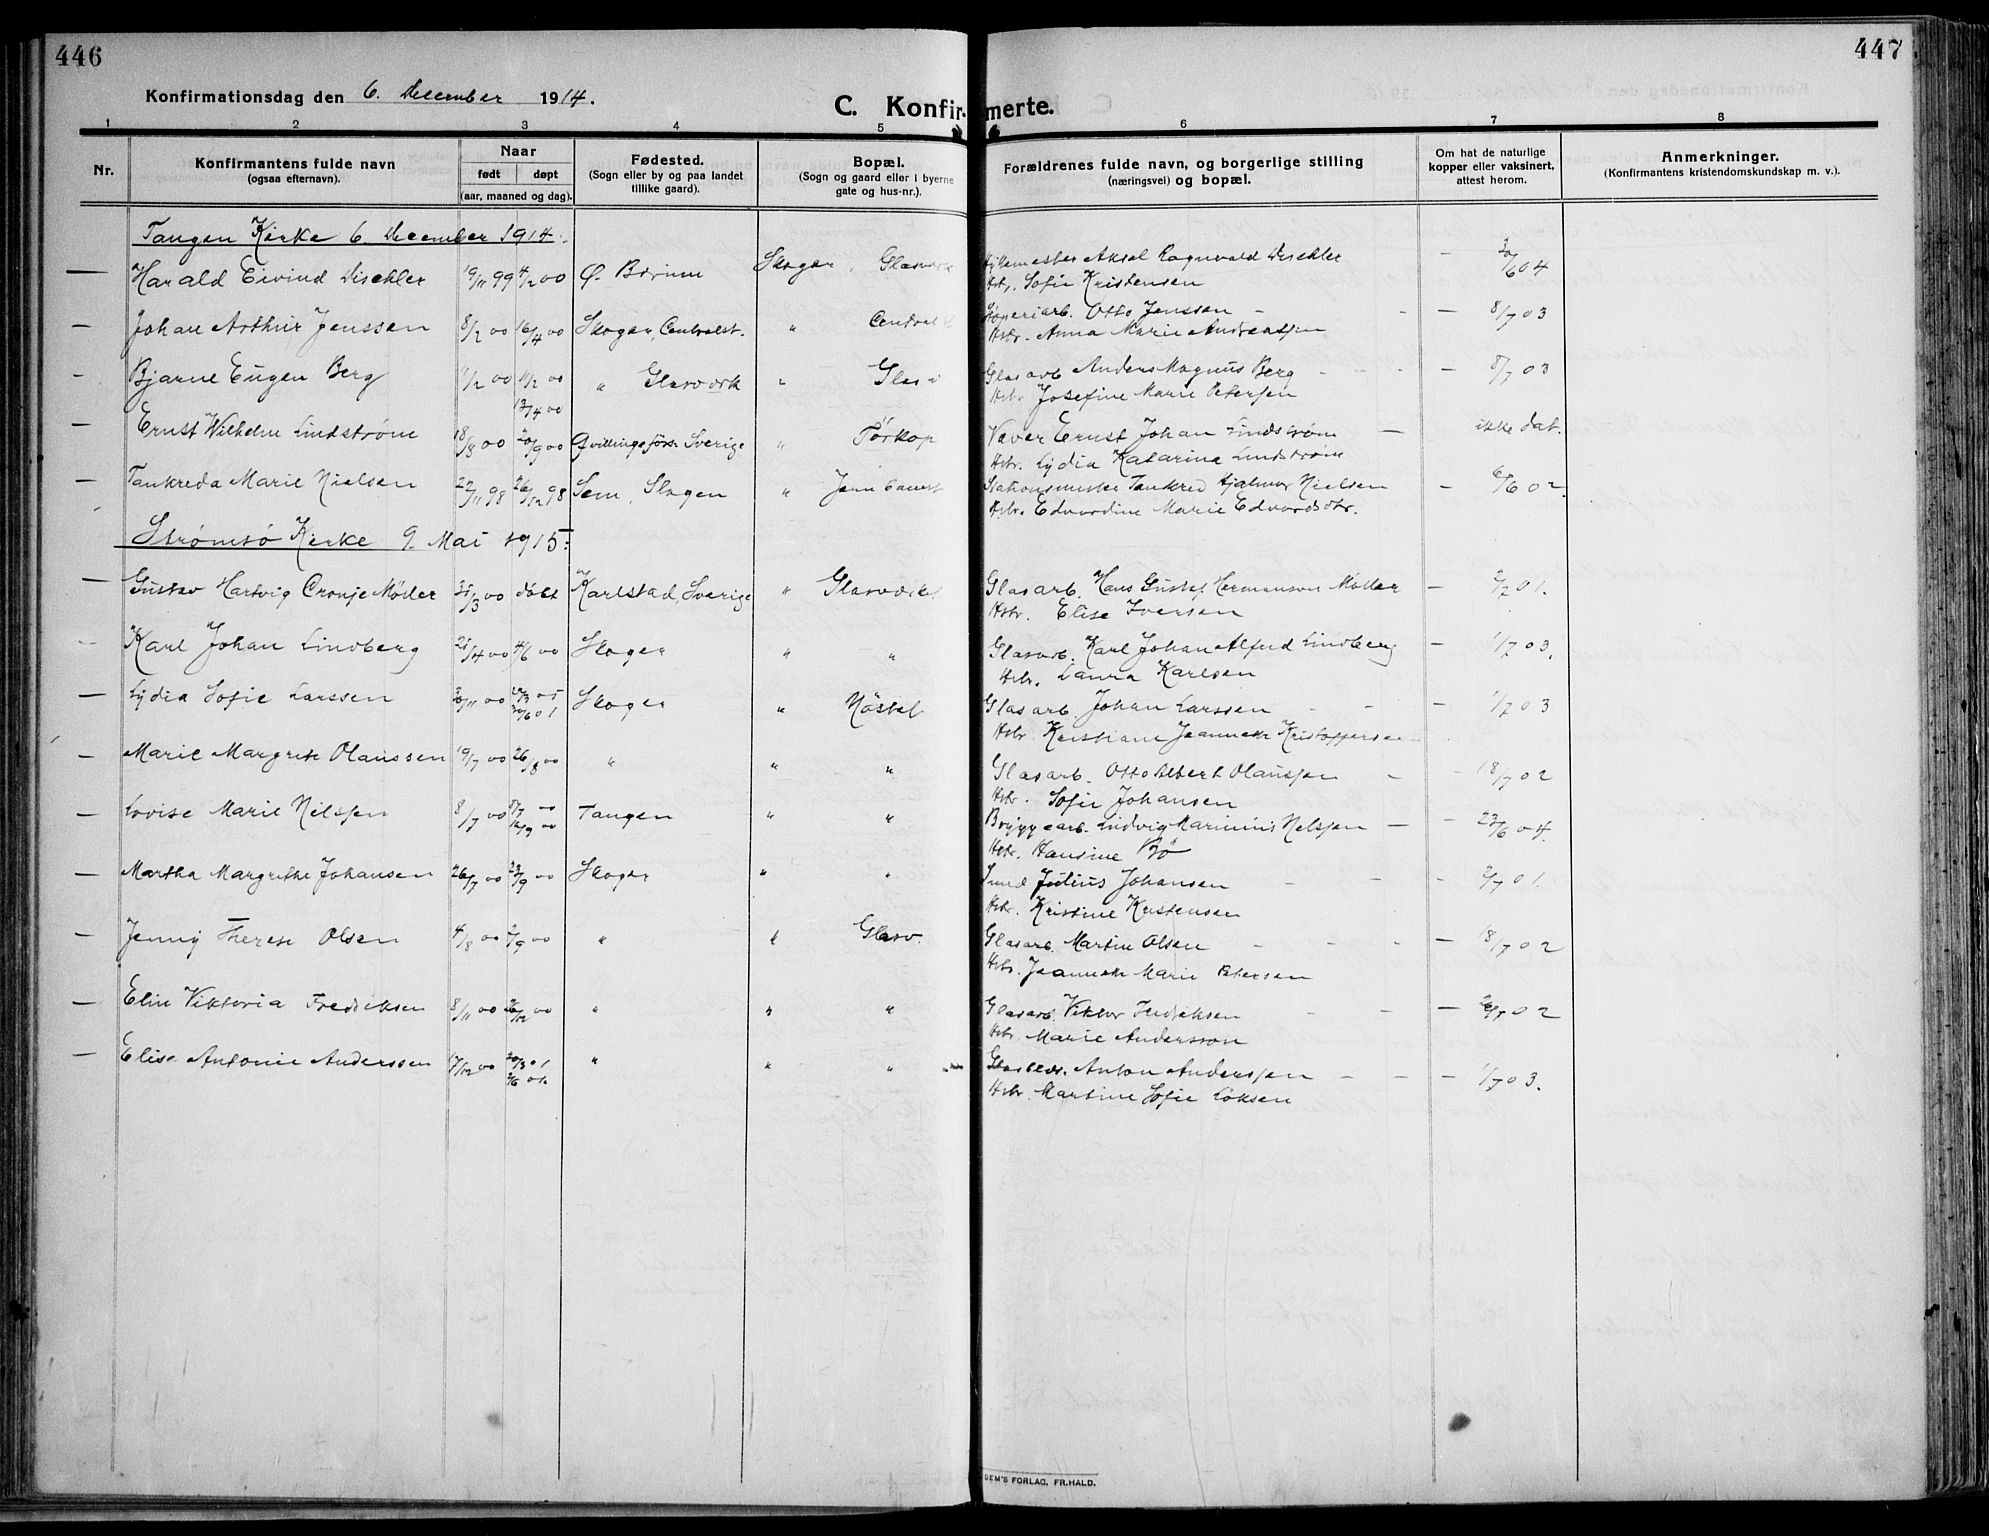 446
447
Konfirmationsdag den 6. December 1914.
C. Konfirmerte.
1 2 3 4 5 6 7 8
Nr.
Konfirmantens fulde navn
(ogsaa efternavn).
Naar
født døpt
(aar, maaned og dag).
Fødested.
(Sogn eller by og paa landet
tillike gaard).
Bopæl.
(Sogn og gaard eller i byerne
gate og hus-nr.).
Forældrenes fulde navn, og borgerlige stilling
(næringsvei) og bopæl.
Om hat de naturlige
kopper eller vaksinert,
attest herom.
Anmerkninger.
(Konfirmantens kristendomskundskap m. v.).
Tangen Kirke 6. December 1914.
— Harald Eivind Dischler 19/11 99 4/2 00 Ø. Bærum Skoger Glasværk
Aksel Ragnvald Dischler – 30/6 04
Htr. Sofie Kristensen
– Johan Arthur Jenssen 8/2 00 16/4 00 Skoger, Centralst. " Central
Otto Jenssen – – 8/7 03
Htr. Anna Marie Andreassen
– Bjarne Eugen Berg 1/2 00 11/2 00 " Glasværk " Glasv
13/4 00
Glasarb. Anders Magnus Berg – 8/7 03
Htr. Josefine Marie Petersen
– Ernst Wilhelm Lindstrøm 18/8 00 20/9 00 Qvillingeförs. Sverige " Tørkop
Væver Ernst Johan Lindstrøm — ikke dat.
Htr. Lydia Katarina Lindstrøm
– Tankreda Marie Nielsen 22/11 98 26/12 98 Sem, Slagen "
Stationsmester Tankred Hjalmar Nielsen – 6/6 02
Htr. Edvardine Marie Edvardsdtr.
Strømsø Kirke 9. Mai 1915:
— Gustav Hartvig Cronje Møller 31/3 00 døbt Karlstad, Sverige " Glasværk
Glasarb. Hans Gustaf Hermanson Møller – 2/7 01.
Htr. Elise Iversen
– Karl Johan Lindberg 25/4 00 4/6 00 Skoger " "
Glasarb. Karl Johan Alfred Lindberg – 1/7 03.
Htr. Laura Karlsen
— Lydia Sofie Larssen 30/11 00 Skoger " Nøstel
30/6 01
Glasarb. Johan Larssen – – – 1/7 03
Htr. Kristiane Jeannette Kristoffersen
– Marie Margrete Olaussen 19/7 00 26/8 00 " " "
Glasarb. Otto Albert Olaussen – – 18/7 02
Htr. Sofie Johansen
– Lovise Marie Nilssen 8/7 00 8/7 00 Tangen " "
16/9 00
Bryggearb. Ludvig Marinius Nelssen — – 23/6 04.
Htr. Hansine Bø
– Martha Margrethe Johansen 26/7 00 23/9 00 Skoger " "
Smed Julius Johansen – – – 2/7 01.
Htr. Kristine Kristensen
– Jenny Therese Olsen 4/8 00 2/9 00 " " Glasv.
Glasarb. Martin Olsen – – – 18/7 02
Htr. Jeannette Marie Petersen
— Elin Viktoria Fredriksen 8/11 00 26/12 00 " " "
Glasarb. Viktor Fredriksen – – – /7 02
Htr. Marie Andersson
– Elise Antonie Anderssen 17/12 00 20/3 01 " " "
Anton Anderssen – – – 1/7 03.
Htr. Martine Sofie Löksen
SEM'S FORLAG. FR.HALD.